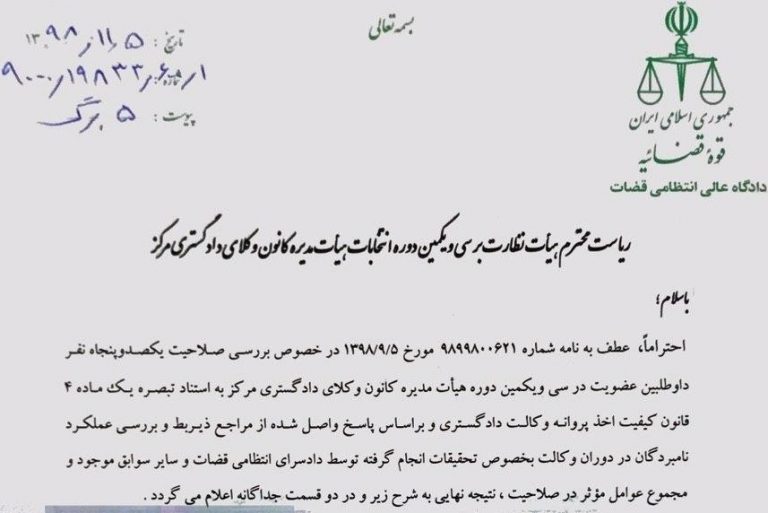 بسمه تعالی
جمهوری اسلامی ایران
قوه قضائیه
دادگاه عالی انتظامی قضات
تاریخ : ۱۳۹۸/۱۱/۵
شماره :
پیوست : ۵ برگ
ریاست محترم هیأت نظارت بر سی و یکمین دوره انتخابات هیأت مدیره کانون وکلای دادگستری مرکز
باسلام؛
احتراماً، عطف به نامه شماره ۹۸۹۹۸۰۰۶۲۱ مورخ ۱۳۹۸/۹/۵ در خصوص بررسی صلاحیت یکصدوپنجاه نفر
داوطلبین عضویت در سی ویکمین دوره هیأت مدیره کانون وکلای دادگستری مرکز به استناد تبصره یک ماده ۴
قانون کیفیت اخذ پروانه وکالت دادگستری و براساس پاسخ واصل شده از مراجع ذیربط و بررسی عملکرد
نامبردگان در دوران وکالت بخصوص تحقیقات انجام گرفته توسط دادسرای انتظامی قضات و سایر سوابق موجود و
مجموع عوامل مؤثر در صلاحیت ، نتیجه نهایی به شرح زیر و در دو قسمت جداگانه اعلام می گردد .